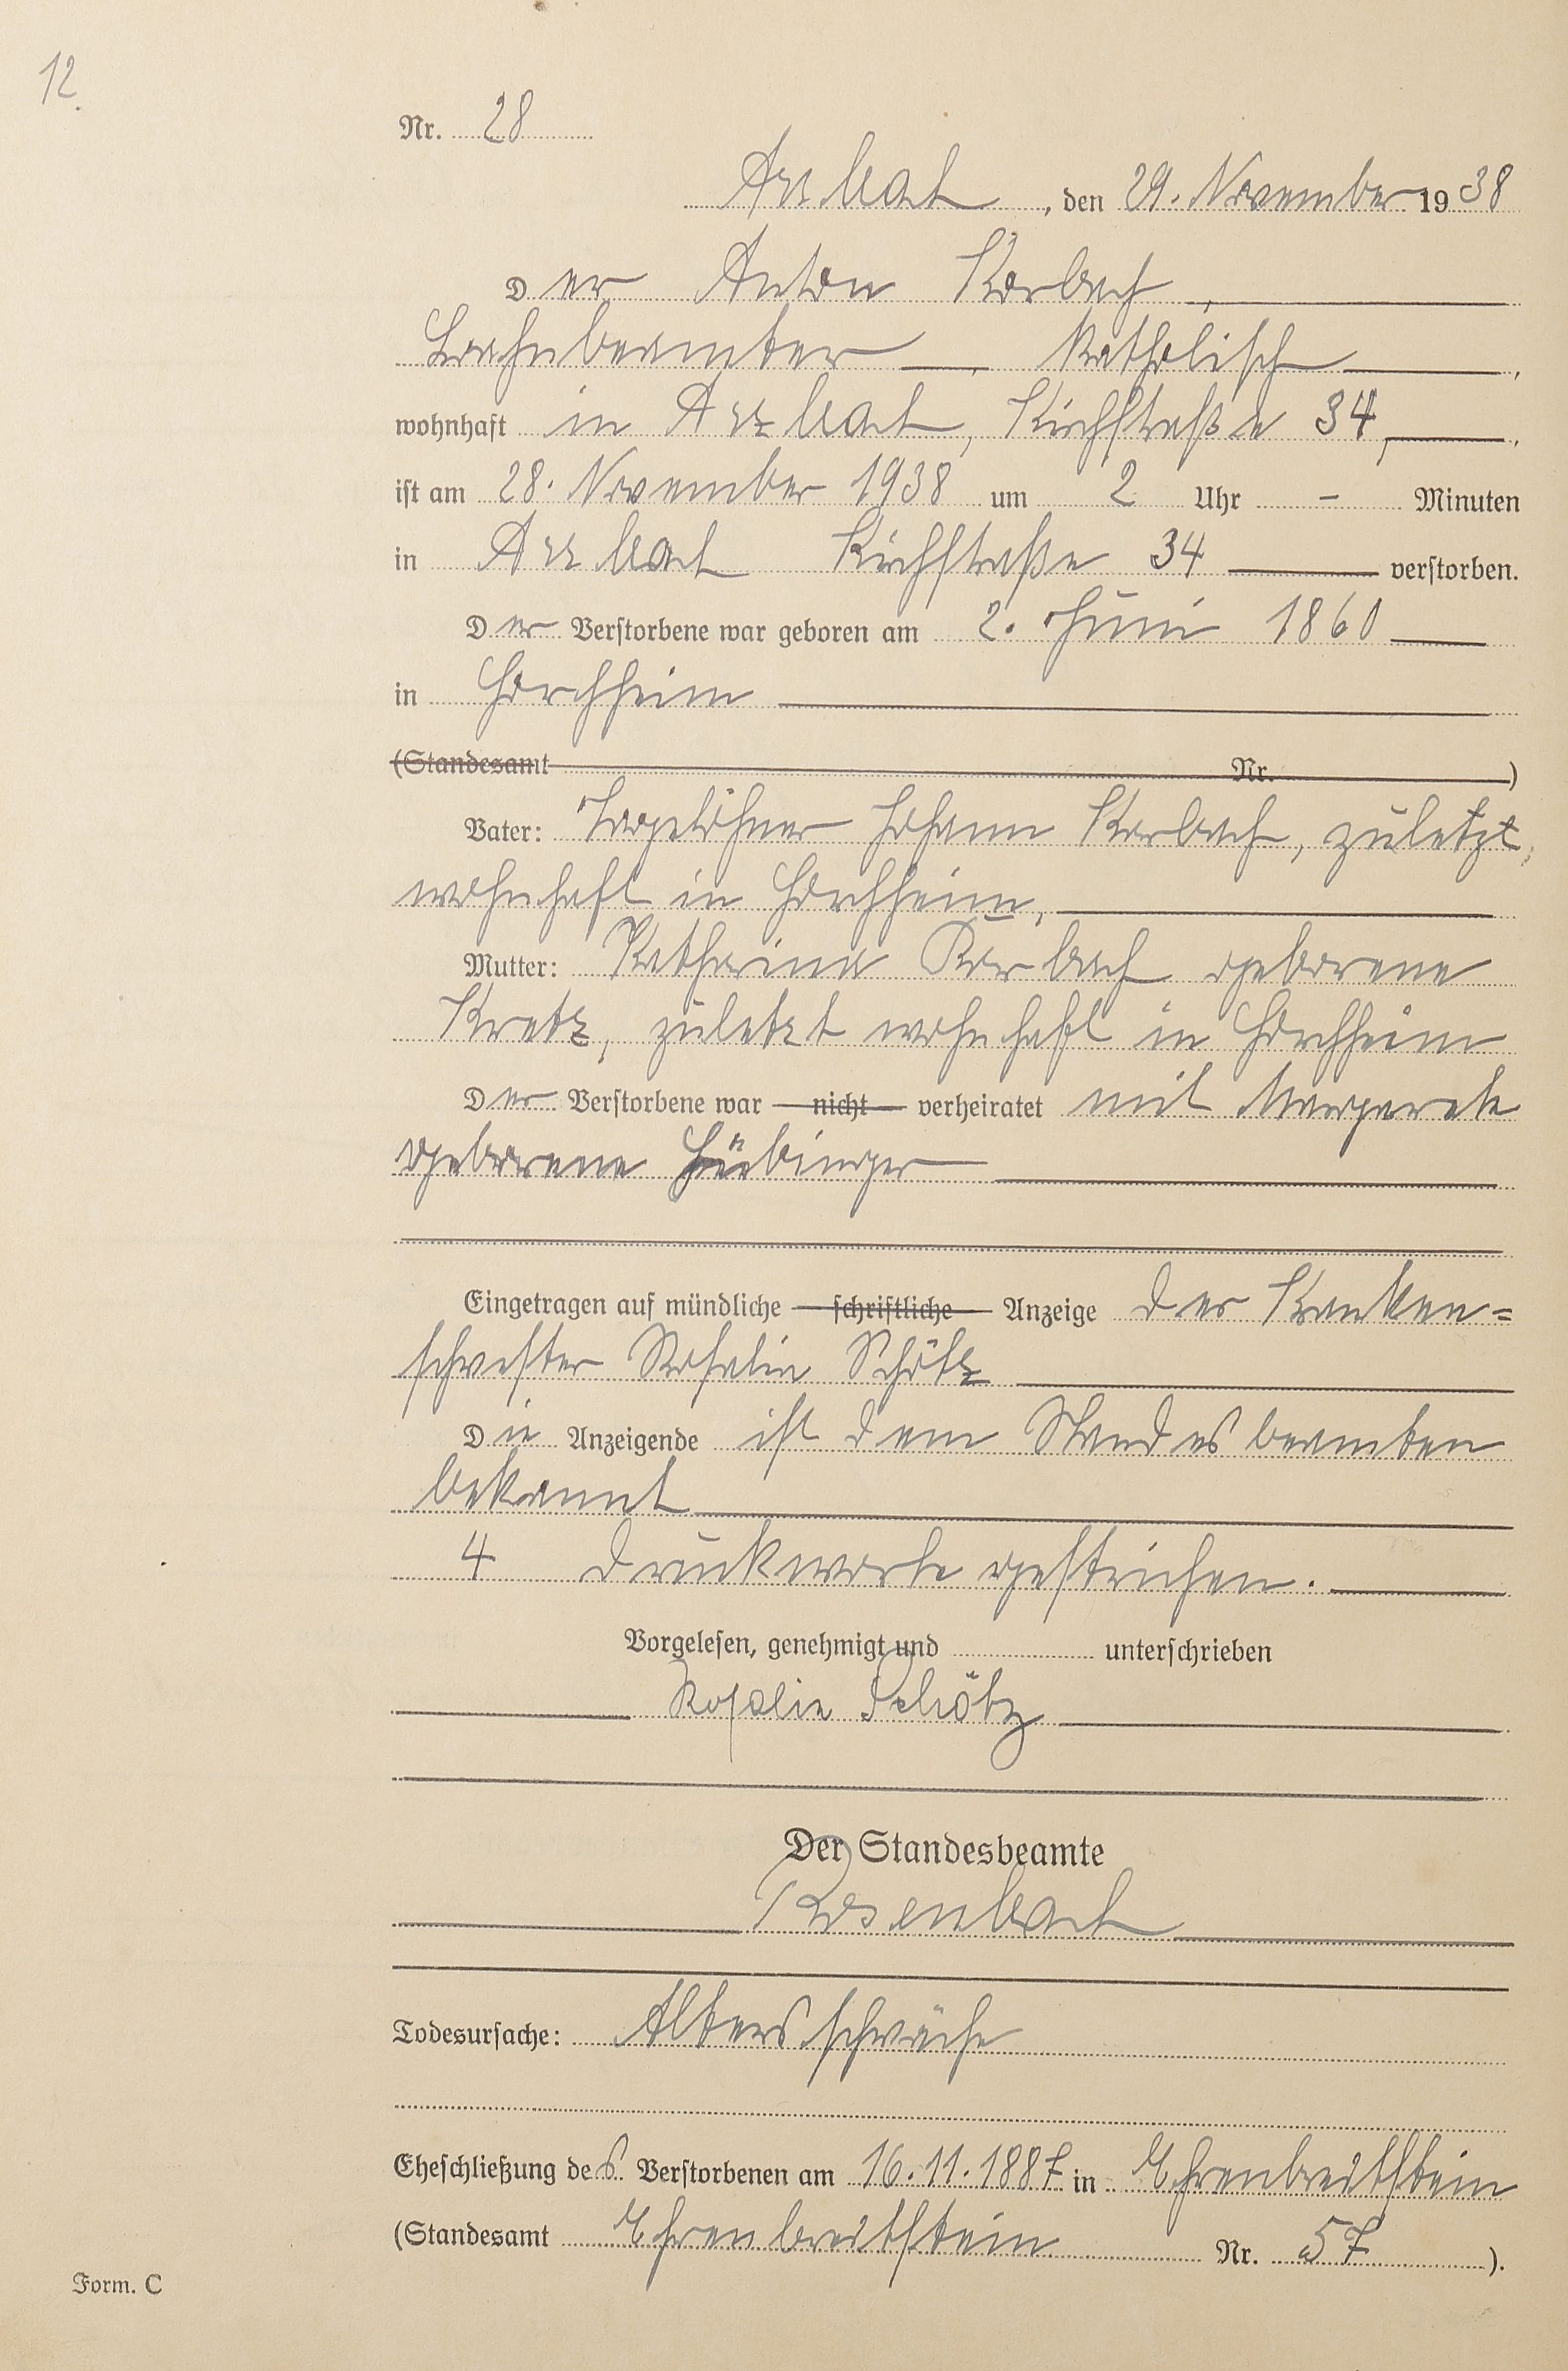 12.
Nr. 28
Arzbach, den 29. November 1938
Der Anton Korbach,
Bahnbeamter, katholisch,
wohnhaft in Arzbach, Kirchstraße 34,
ist am 28. November 1938 um 2 Uhr – Minuten
in Arzbach Kirchstraße 34 verstorben.
Der Verstorbene war geboren am 2. Juni 1860
in Horchheim
(Standesamt Nr. )
Vater: Tagelöhner Johann Korbach, zuletzt
wohnhaft in Horchheim,
Mutter: Katharina Korbach geborene
Kratz, zuletzt wohnhaft in Horchheim
Der Verstorbene war nicht verheiratet mit Margarete
geborene Hübinger
Eingetragen auf mündliche schriftliche Anzeige der Kranken=
schwester Rosalie Schötz
Die Anzeigende ist dem Standesbeamten
bekannt
4 Druckworte gestrichen.
Vorgelesen, genehmigt und unterschrieben
Rosalie Schötz
Der Standesbeamte
Rosenbach
Todesursache: Altersschwäche
Eheschließung des Verstorbenen am 16.11.1887 in Ehrenbreitstein
(Standesamt Ehrenbreitstein Nr. 57 ).
Form. C